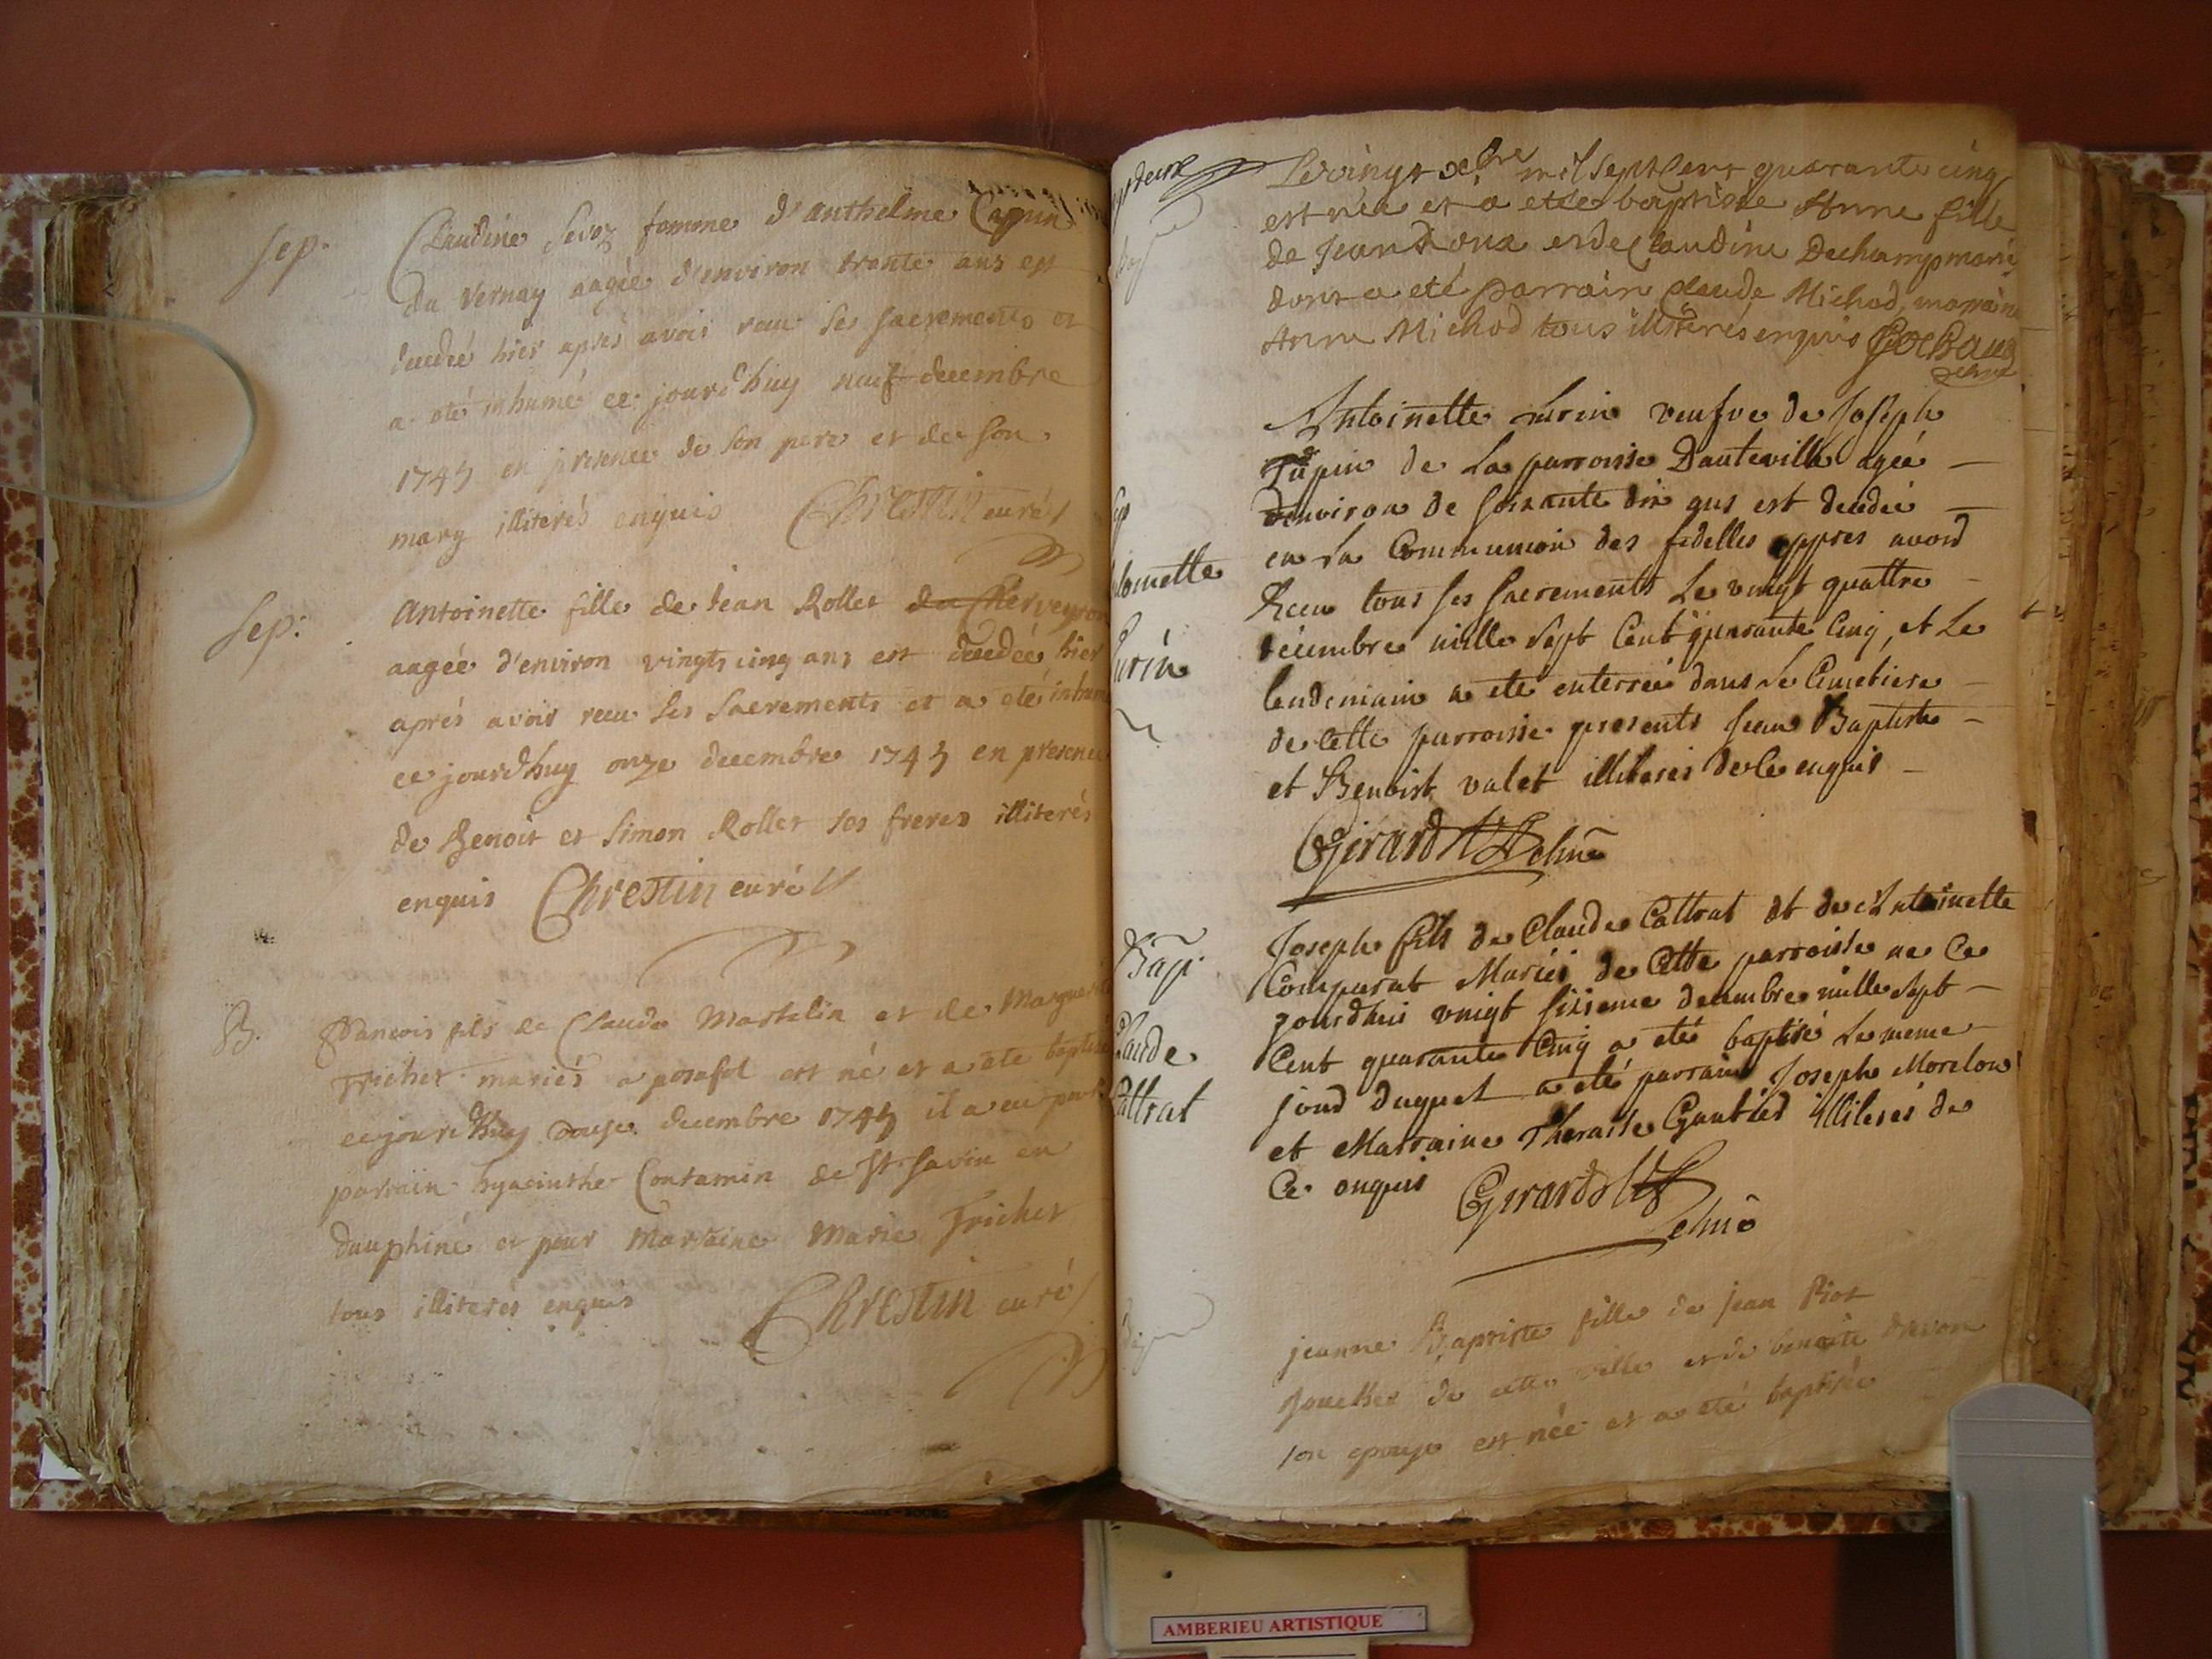 sep.
Claudine Sevoz femme d'anthelme
du Vernay aagée d'environ trente ans est
decedée hier après avoir reçu ses sacrements et
a été inhumé ce jourdhuy neuf decembre
1745 en presence de son pere et de son
mary illiterés enquis Chrestin curé
sep:
Antoinette fille de Jean Rollet
aagée d'environ vingt cinq ans est decedée hier
aprés avoir reçu ses sacrements et a été
ce jourdhuy onze decembre 1745 en presence
de Benoit et Simon Rollet ses freres illiterés
enquis Chrestin curé
B.
françois fils de Claude Martelin et de
Trichet mariés a posafol est né et a eté
ce jourdhuy douze decembre 1745 il a eu
parrain hyacinthe Contamin de St Savin en
dauphiné et pour Marraine Marie Trichet
tous illiterés enquis Chrestin curé
Le vingt xbre mil sept cent quarante cinq
est née et a etée baptisée Anne fille
de Jean et de Claudine Dechamp mariés
dont a eté parrain Claude Michod, marraine
Anne Michod tous illiterés enquis
Antoinette veufve de Joseph
Tupin de La parroisse Dauteville agée
denviron de soixante dix ans est decedée
en La Communion des fidelles appres avoid
Receu tous ses sacrements Le vingt quattre
décembre mille sept Cent quarante Cinq, et Le
lendemain a ete enterrée dans Le Cimetiere
de Cette parroisse presents Jean Baptiste
et Benoist valet illiterés de Ce enquis
Girard
Bap.
Claude
Cattrat
Joseph fils de Claude Cattrat et de Antoinette
Comparat Mariés de Cette parroisse ne Ce
jourdhui vingt sixieme decembre mille sept
Cent quarante Cinq a eté baptisé Le meme
joud duquel a eté parrain Joseph Morelon
et Marraine Therasse Gautier illiterés de
Ce enquis Girard
jeanne Baptiste fille de jean
de cette ville et de benoite
son epouse est née et a eté baptisée
AMBERIEU ARTISTIQUE